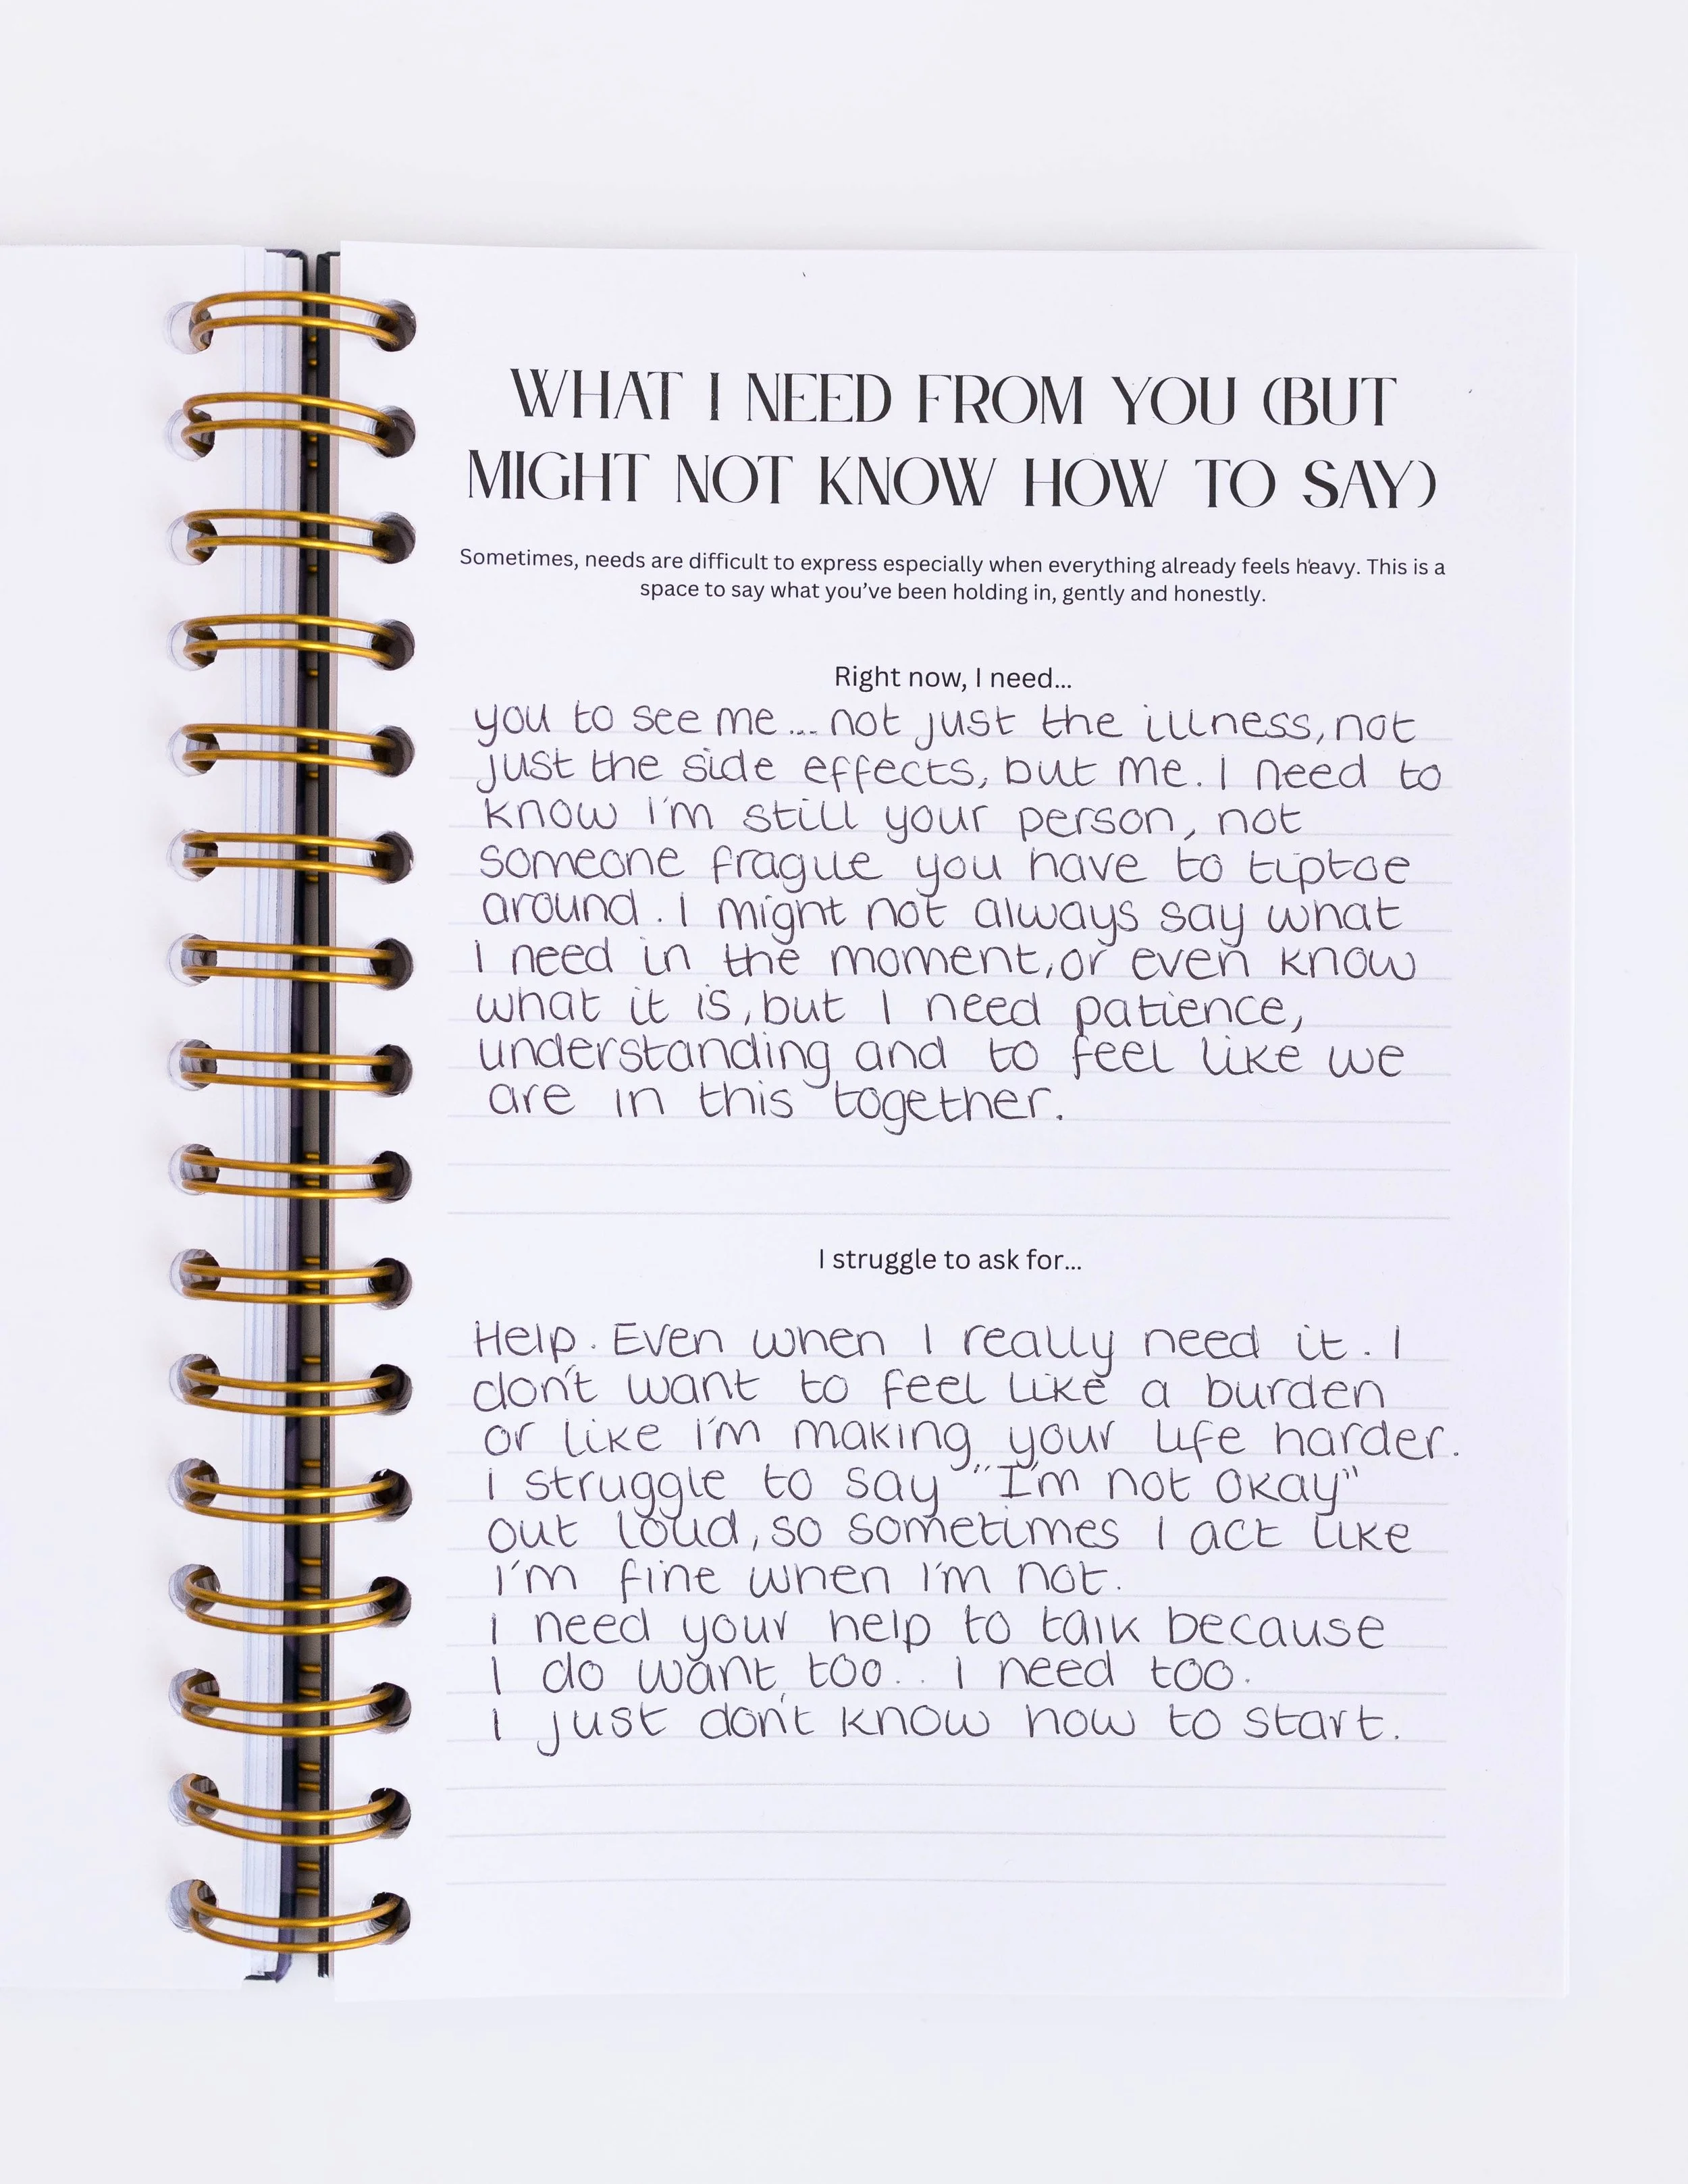 WHAT I NEED FROM YOU (BUT
MIGHT NOT KNOW HOW TO SAY)
Sometimes, needs are difficult to express especially when everything already feels heavy. This is a
space to say what you've been holding in, gently and honestly.
Right now, I need...
you to see me... not just the illness, not
just the side effects, but me. I need to
know I'm still your person, not
someone fragile you have to tiptoe
around. I might not always say what
I need in the moment, or even know
what it is, but I need patience,
understanding and to feel like we
are in this together.
I struggle to ask for...
Help. Even when I really need it. I
don't want to feel like a burden
or like I'm making your life harder.
I struggle to say "I'm not okay"
out loud, so sometimes I act like
I'm fine when I'm not.
I need your help to talk because
I do want too.. I need too.
I just don't know how to start.